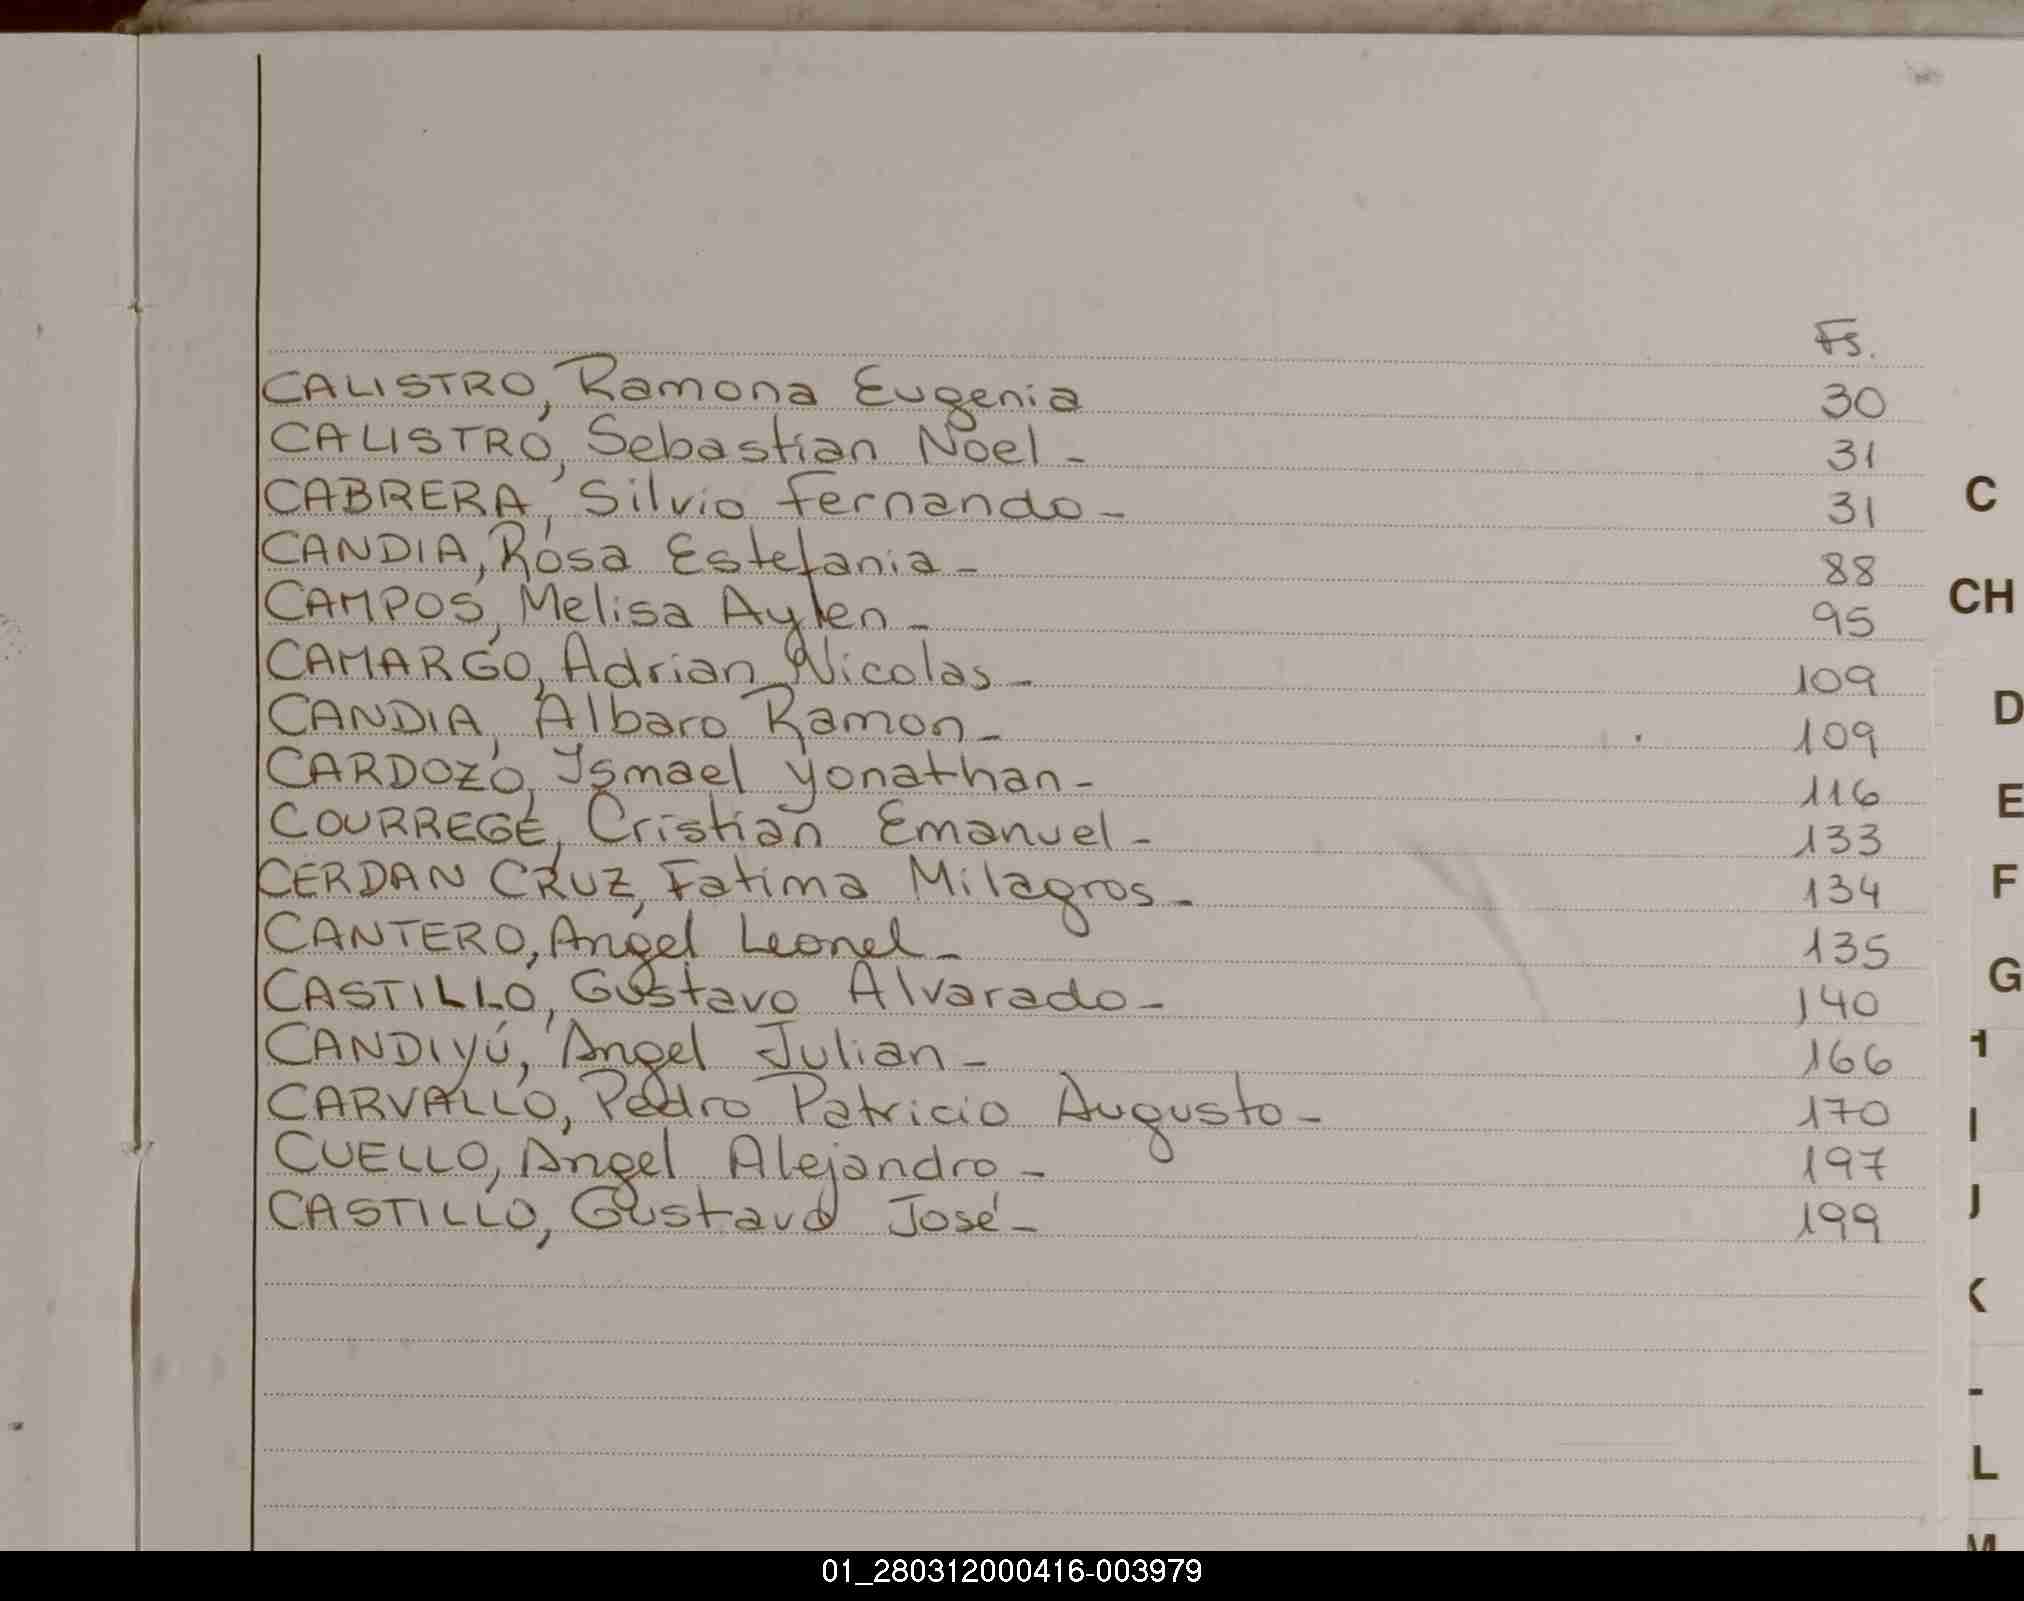 Fs.
CALISTRO, Ramona Eugenia 30
CALISTRO, Sebastian Noel - 31
CABRERA, Silvio Fernando - 31
CANDIA, Rosa Estefania - 88
CAMPOS, Melisa Aylen - 95
CAMARGO, Adrian Nicolas - 109
CANDIA, Albaro Ramon - 109
CARDOZO, Ismael Yonathan - 116
COURREGE, Cristian Emanuel - 133
CERDAN CRUZ, Fatima Milagros - 134
CANTERO, Angel Leonel - 135
CASTILLO, Gustavo Alvarado - 140
CANDIYÚ, Angel Julian - 166
CARVALLO, Pedro Patricio Augusto - 170
CUELLO, Angel Alejandro - 197
CASTILLO, Gustavo José - 199
C
CH
D
E
F
G
H
I
J
K
L
M
01_280312000416-003979